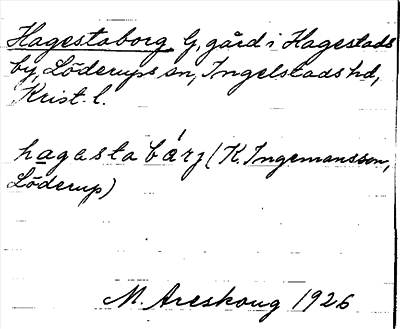 Hagestaborg G, gård i Hagestads
by, Löderups sn, Ingelstads hd,
Krist. l.
hagasta bárj (K. Ingemansson,
Löderup)
M. Areskoug 1926